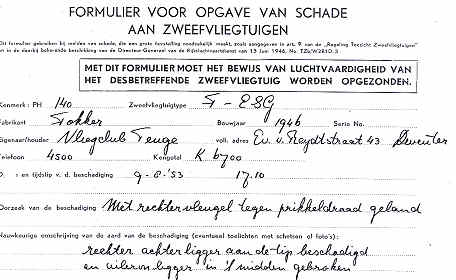 FORMULIER VOOR OPGAVE VAN SCHADE
AAN ZWEEFVLIEGTUIGEN
Dit formulier gebruiken bij melden van schade, die een grote herstelling noodzakelijk maakt, zoals aangegeven in art. 9 van de „Regeling Toezicht Zweefvliegtuigen"
en in de daarbij behorende beschikking van de Directeur-Generaal van de Rijksluchtvaartdienst van 13 Juni 1946, No. TZb/W2810.3
MET DIT FORMULIER MOET HET BEWIJS VAN LUCHTVAARDIGHEID VAN
HET DESBETREFFENDE ZWEEFVLIEGTUIG WORDEN OPGEZONDEN.
Kenmerk: PH 140 Zweefvliegtuigtype F-ESG
Fabrikant Fokker Bouwjaar 1946 Serie No.
Eigenaar/houder Vliegclub Teuge voll. adres Ev. v. Reydtstraat 43 Deventer
Telefoon 4500 Kengetal K 6700
en tijdstip v. d. beschadiging 9-8-'53 17.10
Oorzaak van de beschadiging Met rechtervleugel tegen prikkeldraad geland
Nauwkeurige omschrijving van de aard van de beschadiging (eventueel toelichten met schetsen of foto's):
rechter achterligger aan de tip beschadigd
en aileronligger in 't midden gebroken